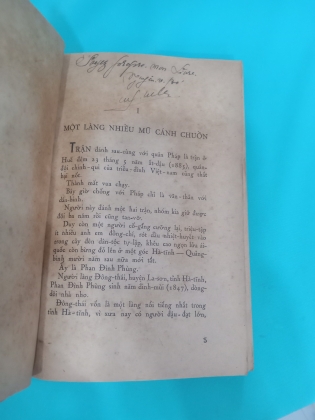 I
MỘT LÀNG NHIỀU MŨ CÁNH CHUỒN
TRẬN đánh úp cùng với quân Pháp là trận ở
Huế đêm 23 tháng 5 năm ất-dậu (1885), quân
lính chính-qui của triều-đình Việt-nam cũng thất
bại nốt.
Thành mất vua chạy.
Bây giờ chống với Pháp chỉ là văn-thân với
dân-binh.
Người này đánh một hai trận, nhóm kia giữ được
đôi ba năm rồi cũng tan-rã.
Duy còn một người cố-gắng cưỡng lại, triệu-tập
ít nhiều anh em đồng-chí, rột dầu nhiệt-huyết vào
trong cây đèn dân-tộc tự-lập, khêu cao ngọn lửa ái-
quốc còn bừng đỏ lên ở một góc Hà-tĩnh — Quảng-
bình mười năm sau nữa mới tắt.
Ấy là Phan Đình Phùng.
Người làng Đông-thái, huyện La-sơn, tỉnh Hà-tĩnh,
Phan Đình Phùng sinh năm đinh-mùi (1847), dòng-
dõi nhà nho.
Đông-thái vốn là một làng nổi tiếng nhất trong
tỉnh Hà-tĩnh, vì xưa nay có người đậu-đạt lớn,
5